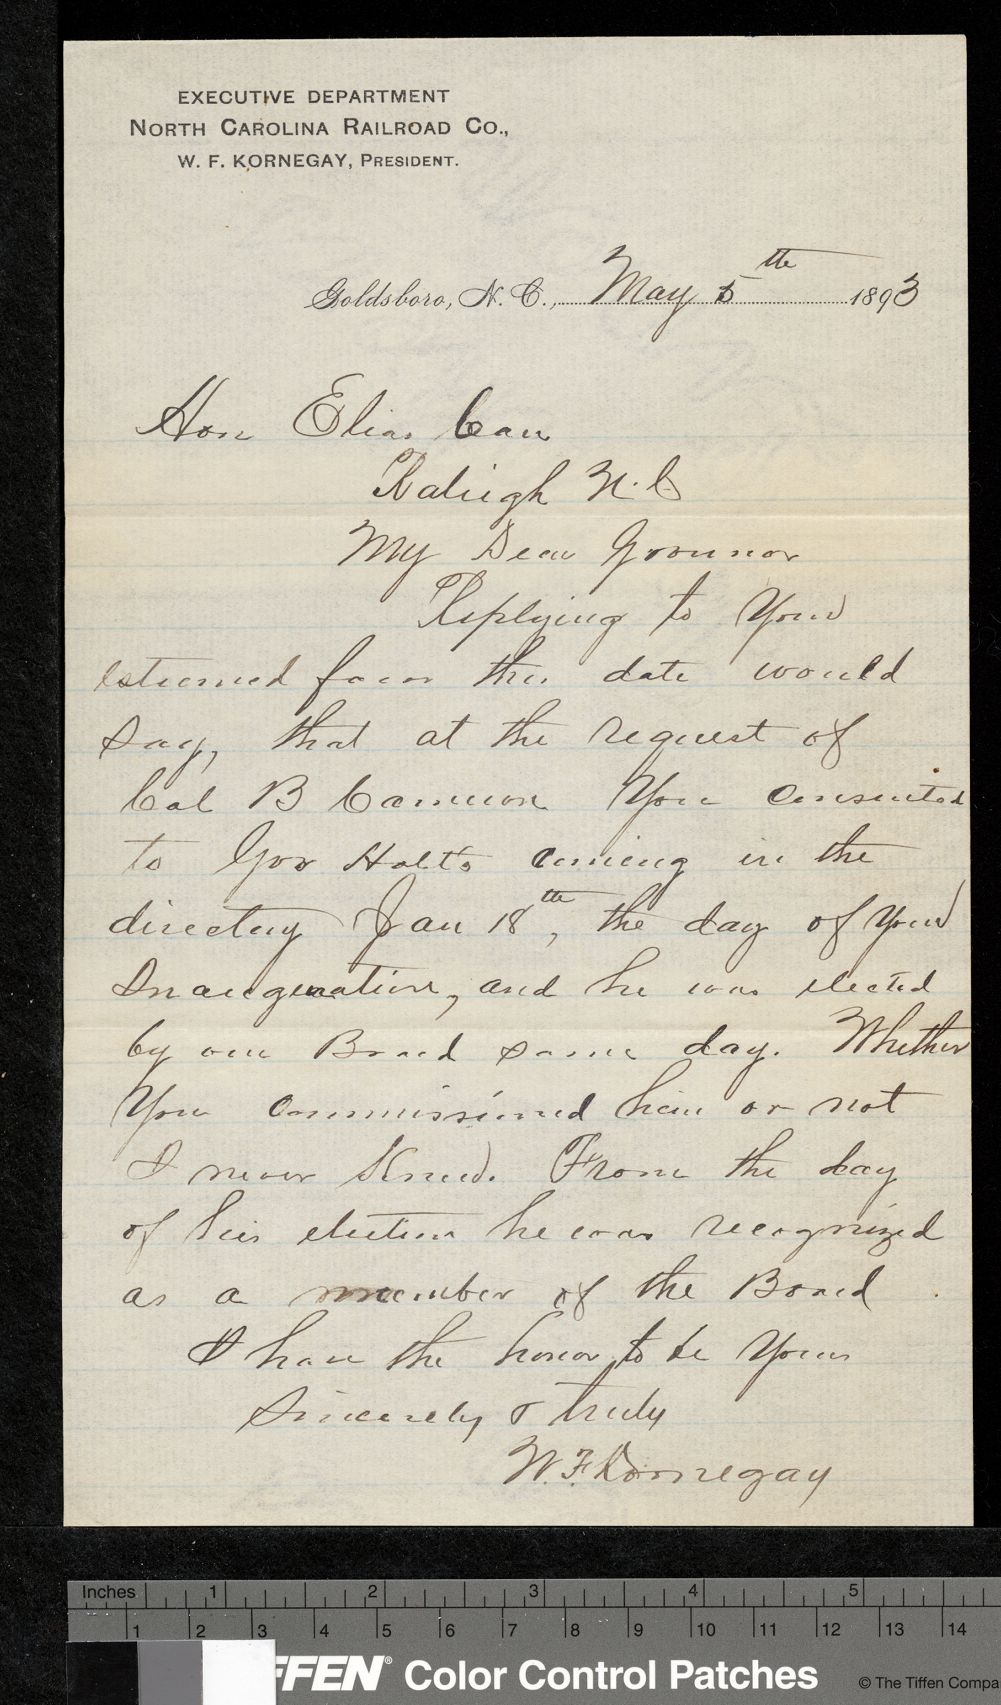 EXECUTIVE DEPARTMENT
NORTH CAROLINA RAILROAD CO.,
W. F. KORNEGAY, PRESIDENT.
Goldsboro, N. C., May 5th 1893
Hon Elias Carr
Raleigh N. C
My Dear Governor
Replying to Your
esteemed favor this date would
say, that at the request of
Col B Cameron You consented
to Gov Holt's coming in the
directory Jan 18th, the day of Your
Inauguration, and he was elected
by our Board same day. Whether
You commissioned him or not
I never Knew. From the day
of his election he was recognized
as a member of the Board
I have the honor to be Yours
Sincerely & truly
W. F. Kornegay
Inches 1 2 3 4 5
1 2 3 4 5 6 7 8 9 10 11 12 13 14
FFEN® Color Control Patches
© The Tiffen Compa